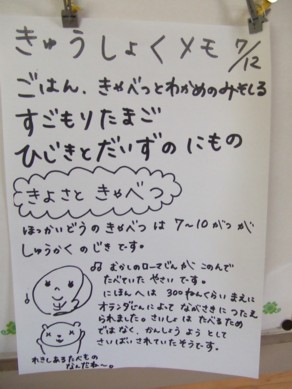 きゅうしょくメモ 7/12
ごはん、きゃべつとわかめのみそしる
すごもりたまご
ひじきとだいずの にもの
きよさと きゃべつ
ほっかいどうの きゃべつ は 7〜10 がつ が
しゅうかく の じき です。
♫ むかしのローマじんが このんで
たべていた やさい です。
にほんへは 300ねんくらい まえに
オランダじんによって ながさきに つたえ
られました。さいしょは たべるため
ではなく、かんしょう よう として
さいばいされていたそうです。
れきしあるたべもの
なんだね〜。